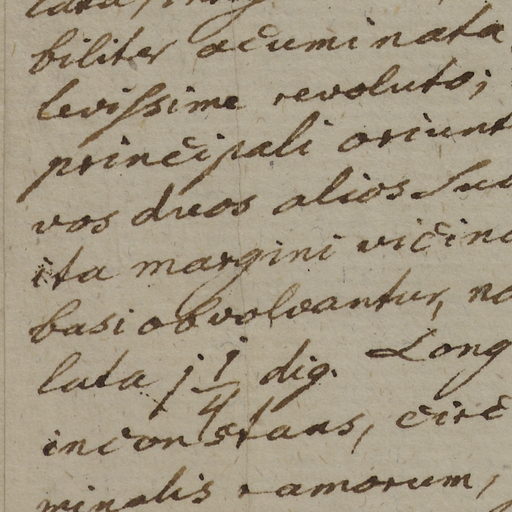 biliter acuminata
levissime revoluto;
principali oriunt
vos duos alios suc
ita margini vicino
basi obvolvantur, no
lata 1 1/4 dig. Long
inconstans, circ
minalis ramorum,